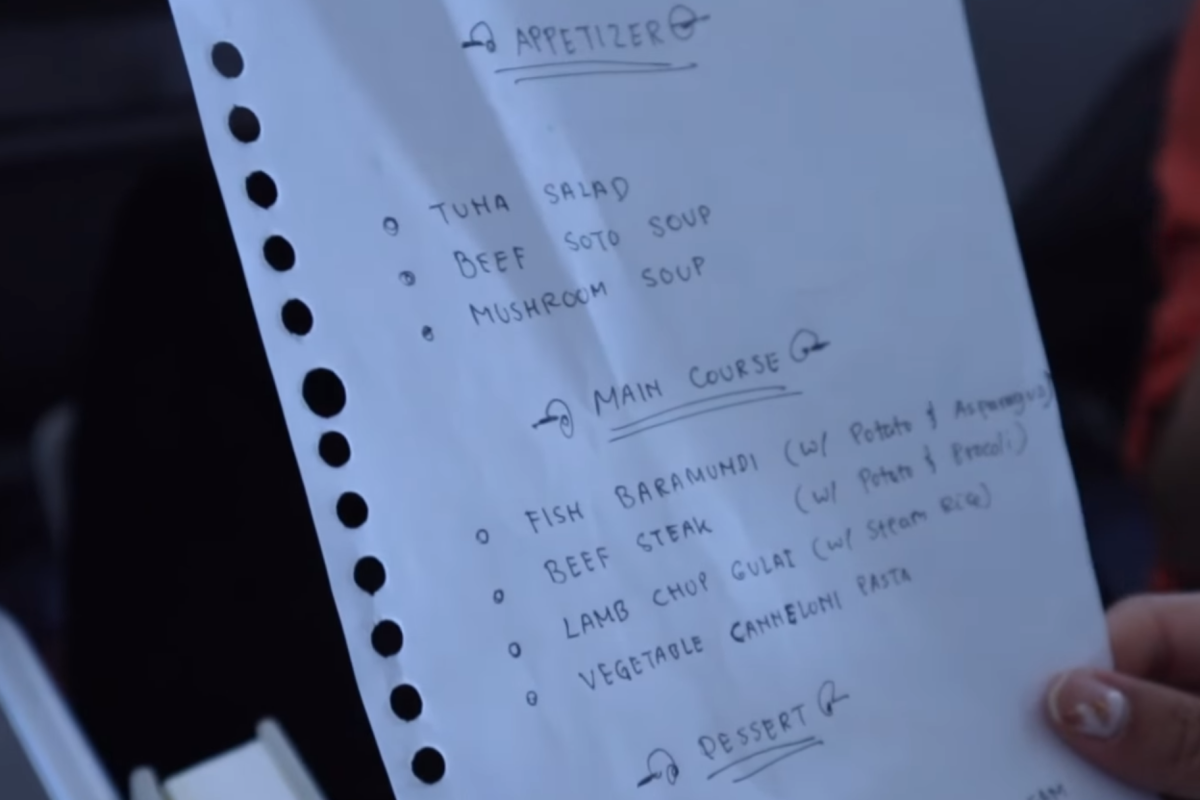 APPETIZER
TUNA SALAD
BEEF SOTO SOUP
MUSHROOM SOUP
MAIN COURSE
FISH BARAMUNDI (w/ Potato & Asparagus)
BEEF STEAK (w/ Potato & Brocoli)
LAMB CHOP GULAI (w/ Steam Rice)
VEGETABLE CANNELONI PASTA
DESSERT